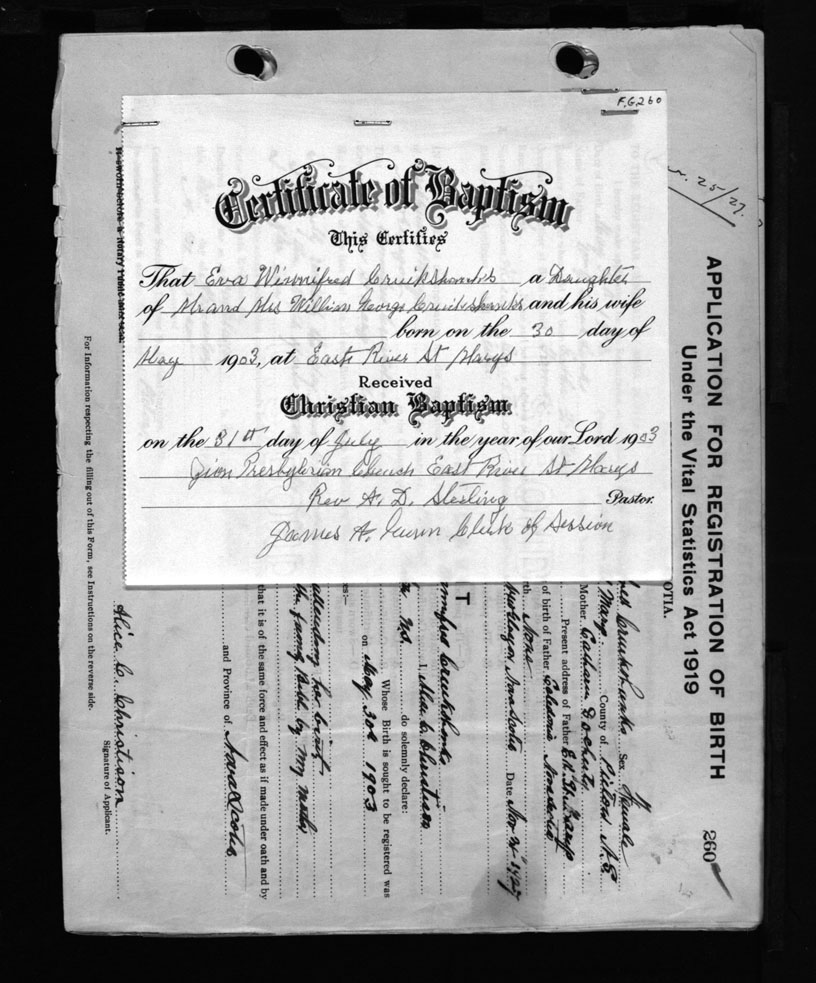 F.G.260
Certificate of Baptism
This Certifies
That Eva Winnifred Cruikshanks a Daughter
of Mr and Mrs William George Cruikshanks and his wife
born on the 30 day of
May 1903, at East River St Marys
Received
Christian Baptism
on the 31st day of July in the year of our Lord 1903
Zion Presbyterian Church East River St Marys
Rev A. D. Sterling Pastor.
James A. Clerk of Session
25/27.
APPLICATION FOR REGISTRATION OF BIRTH
Under the Vital Statistics Act 1919
260
OTIA.
Cruikshanks Sex Female
Marys County of Pictou N.S.
Mother
Present address of Father
of birth of Father Caledonia Nova Scotia
rth None
Nova Scotia Date Nov 21st 1927
T
Cruikshanks
I, Alice C. Christison
N.S. do solemnly declare:
Whose Birth is sought to be registered was
on May 30th 1903
es:—
attending her birth
the family Bible by my mother
that it is of the same force and effect as if made under oath and by
and Province of Nova Scotia
Alice C. Christison
Signature of Applicant.
For Information respecting the filling out of this Form, see Instructions on the reverse side.